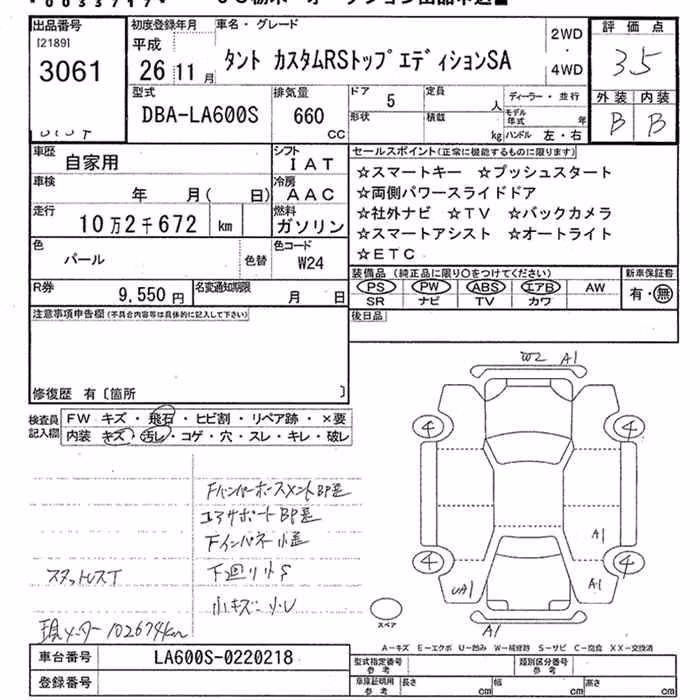 * 0033717 *
出品番号 初度登録年月 車名・グレード 2WD ・ 4WD 評価点
[2189] 平成 26 11月 タント カスタムRSトップエディションSA 3.5
3061
型式 排気量 ドア 定員 人 ディーラー・並行 外装 内装
DBA-LA600S 660 CC 5 形状 積載 kg モデル年式 年 ハンドル 左・右 B B
車歴 自家用 シフト IAT セールスポイント(正常に機能するものに限ります)
車検 年 月( 日) 冷房 AAC ☆スマートキー ☆プッシュスタート
☆両側パワースライドドア
走行 10万2千672 km 燃料 ガソリン ☆社外ナビ ☆TV ☆バックカメラ
☆スマートアシスト ☆オートライト
色 パール 色替 色コード W24 ☆ETC
R券 9,550円 名変通知期限 月 日 装備品 (純正品に限り○をつけてください) 新車保証書
PS PW ABS エアB AW 有・無
SR ナビ TV カワ
注意事項申告欄(不具合内容等は具体的に記入して下さい) 後日品
修復歴 有〔箇所 〕
W2 A1
検査員記入欄 FW キズ・飛石・ヒビ割・リペア跡・×要
内装 キズ・汚レ・コゲ・穴・スレ・キレ・破レ
4 4
FバンパーホースメントBP歪
エアサポートBP歪
Fインパネ小歪 A1
スタットレスT 下廻り小サ 4 4
UA1 A1
小キズ 小U
現メーター102674km スペア A1
A-キズ E-エクボ U-凹み W-補修跡 S-サビ C-腐食 XX-交換済
車台番号 LA600S-0220218 型式指定番号 参考 類別区分番号 参考
登録番号 車庫証明用 参考 長さ cm 幅 cm 高さ cm